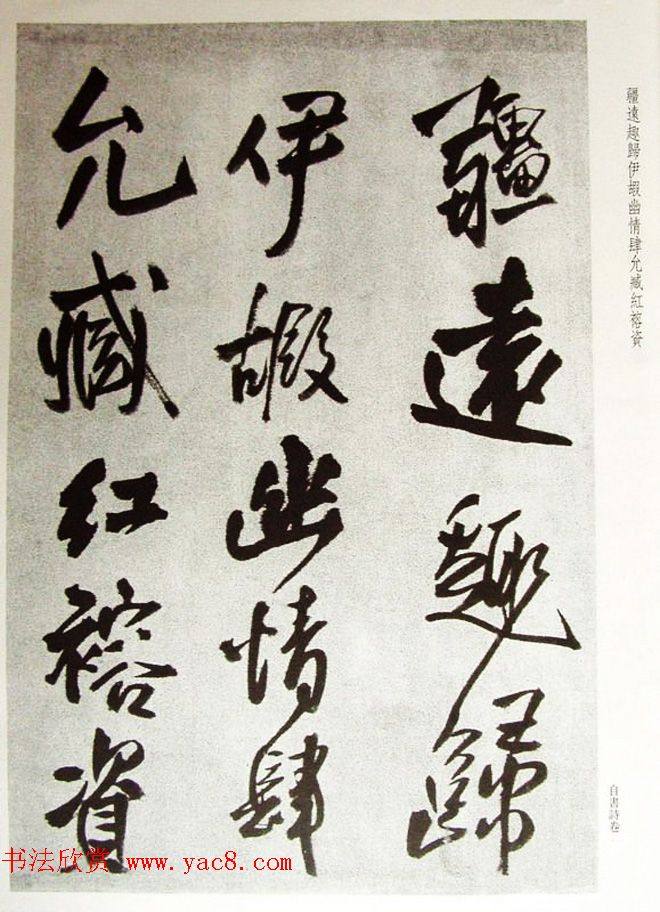 疆遠趣歸伊嘏幽情肆允臧紅裕資
疆遠趣歸
伊嘏幽情肆
允臧紅裕資
自書詩卷
书法欣赏 www.yac8.com